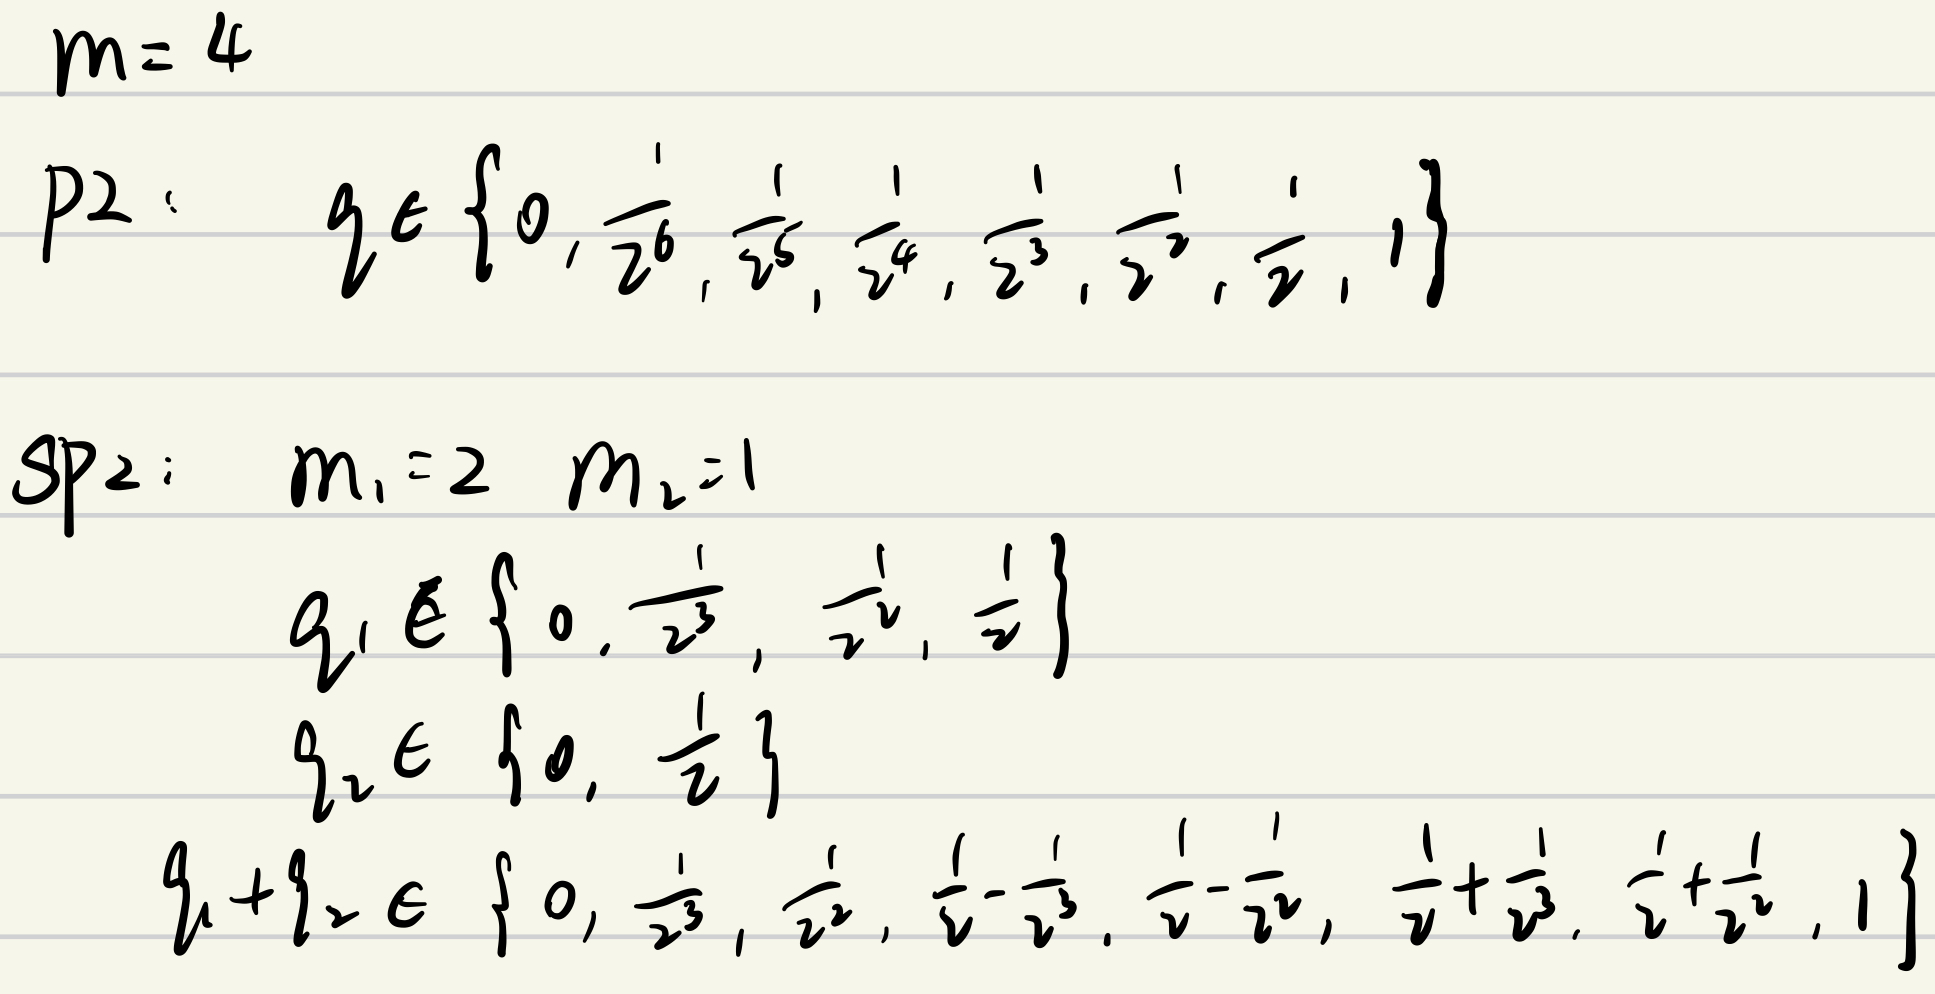 m = 4
P2: q ∈ {0, 1/2^6, 1/2^5, 1/2^4, 1/2^3, 1/2^2, 1/2, 1}
SP2: m_1 = 2 m_2 = 1
q_1 ∈ {0, 1/2^3, 1/2^2, 1/2}
q_2 ∈ {0, 1/2}
q_1 + q_2 ∈ {0, 1/2^3, 1/2^2, 1/2 - 1/2^3, 1/2 - 1/2^2, 1/2 + 1/2^3, 1/2 + 1/2^2, 1}